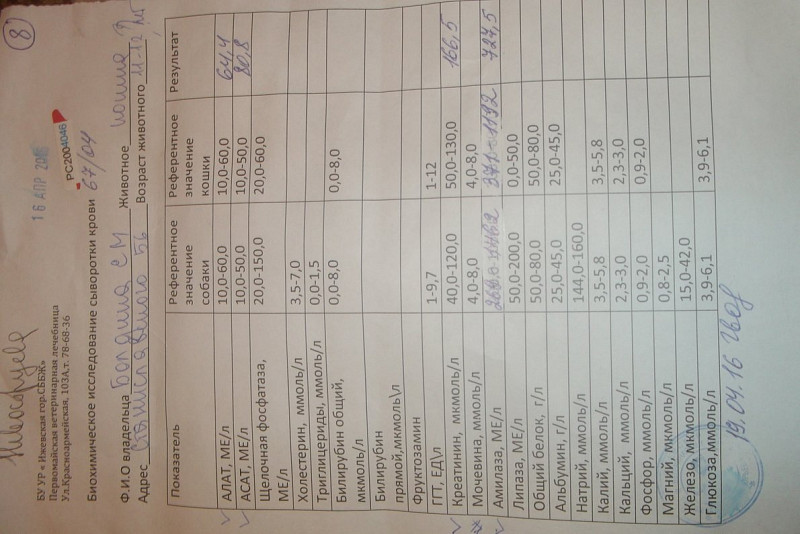 8
16 АПР
РС2004046
БУ УР « Ижевская гор.СББЖ»
Первомайская ветеринарная лечебница
Ул.Красноармейская, 103А,т. 78-68-36
Биохимическое исследование сыворотки крови 67/04
Ф.И.О владельца Болдина С М Животное кошка
Адрес 56 Возраст животного 11-12 лет
Показатель Референтное значение собаки Референтное значение кошки Результат
АЛАТ, МЕ/л 10,0-60,0 10,0-60,0 64,4
АСАТ, МЕ/л 10,0-50,0 10,0-50,0 80,8
Щелочная фосфатаза, МЕ/л 20,0-150,0 20,0-60,0
Холестерин, ммоль/л 3,5-7,0
Триглицериды, ммоль/л 0,0-1,5
Билирубин общий, мкмоль/л 0,0-8,0 0,0-8,0
Билирубин прямой,мкмоль\л
Фруктозамин
ГГТ, ЕД\л 1-9,7 1-12
Креатинин, мкмоль/л 40,0-120,0 50,0-130,0 166,5
Мочевина, ммоль/л 4,0-8,0 4,0-8,0
Амилаза, МЕ/л 371-1192 727,5
Липаза, МЕ/л 50,0-200,0 0,0-50,0
Общий белок, г/л 50,0-80,0 50,0-80,0
Альбумин, г/л 25,0-45,0 25,0-45,0
Натрий, ммоль/л 144,0-160,0
Калий, ммоль/л 3,5-5,8 3,5-5,8
Кальций, ммоль/л 2,3-3,0 2,3-3,0
Фосфор, ммоль/л 0,9-2,0 0,9-2,0
Магний, мкмоль/л 0,8-2,5
Железо, мкмоль/л 15,0-42,0
Глюкоза,ммоль/л 3,9-6,1 3,9-6,1
19.04.16